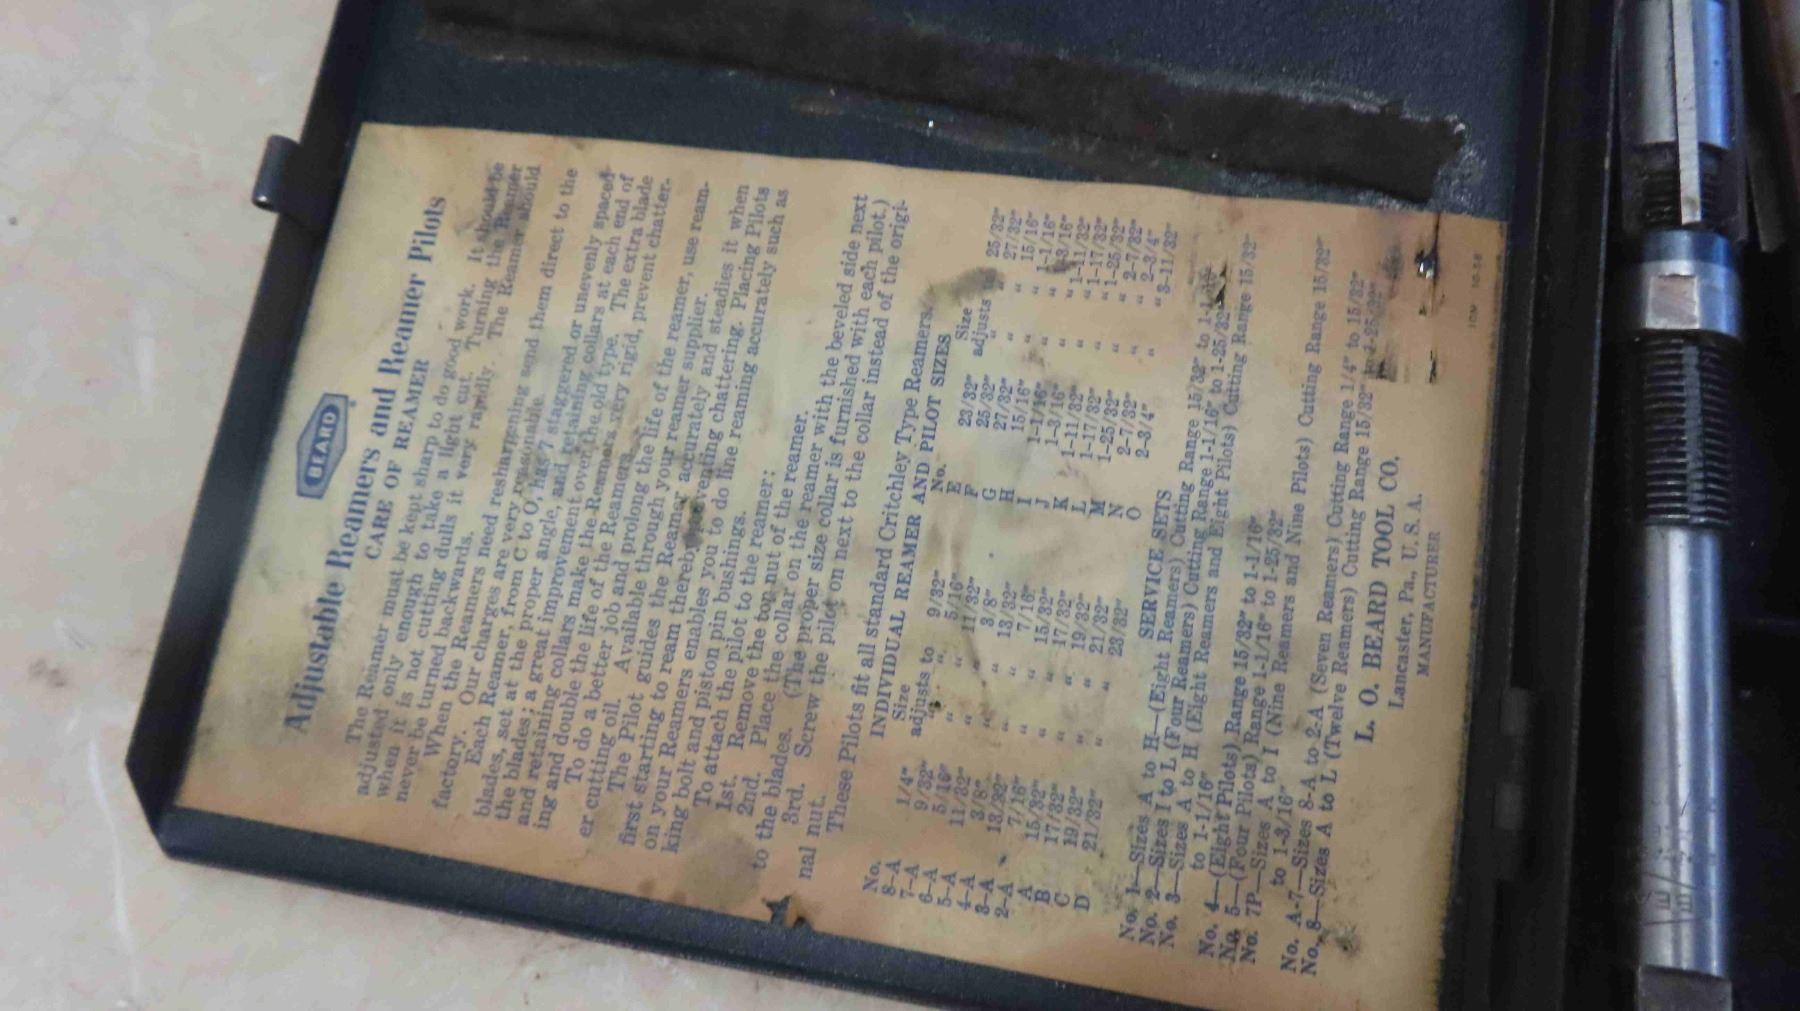 BEARD
Adjustable Reamers and Reamer Pilots
CARE OF REAMER
The Reamer must be kept sharp to do good work. It should be
adjusted only enough to take a light cut. Turning the Reamer
when it is not cutting dulls it very rapidly. The Reamer should
never be turned backwards.
When the Reamers need resharpening send them direct to the
factory. Our charges are very reasonable.
Each Reamer, from C to O, has 7 staggered or unevenly spaced
blades, set at the proper angle, and retaining collars at each end of
the blades; a great improvement over the old type. The extra blade
and retaining collars make the Reamers very rigid, prevent chatter-
ing and double the life of the Reamers.
To do a better job and prolong the life of the reamer, use ream-
er cutting oil. Available through your reamer supplier.
The Pilot guides the Reamer accurately and steadies it when
first starting to ream thereby preventing chattering. Placing Pilots
on your Reamers enables you to do line reaming accurately such as
king bolt and piston pin bushings.
To attach the pilot to the reamer:
1st. Remove the top nut of the reamer.
2nd. Place the collar on the reamer with the beveled side next
to the blades. (The proper size collar is furnished with each pilot.)
3rd. Screw the pilot on next to the collar instead of the origi-
nal nut.
These Pilots fit all standard Critchley Type Reamers.
INDIVIDUAL REAMER AND PILOT SIZES
No. Size No. Size
8-A 1/4" adjusts to 9/32" E 23/32" adjusts to 25/32"
7-A 9/32" " " 5/16" F 25/32" " " 27/32"
6-A 5/16" " " 11/32" G 27/32" " " 15/16"
5-A 11/32" " " 3/8" H 15/16" " " 1-1/16"
4-A 3/8" " " 13/32" I 1-1/16" " " 1-3/16"
3-A 13/32" " " 7/16" J 1-3/16" " " 1-11/32"
2-A 7/16" " " 15/32" K 1-11/32" " " 1-17/32"
A 15/32" " " 17/32" L 1-17/32" " " 1-25/32"
B 17/32" " " 19/32" M 1-25/32" " " 2-7/32"
C 19/32" " " 21/32" N 2-7/32" " " 2-3/4"
D 21/32" " " 23/32" O 2-3/4" " " 3-11/32"
SERVICE SETS
No. 1—Sizes A to H—(Eight Reamers) Cutting Range 15/32" to 1-1/16"
No. 2—Sizes I to L (Four Reamers) Cutting Range 1-1/16" to 1-25/32"
No. 3—Sizes A to H (Eight Reamers and Eight Pilots) Cutting Range 15/32"
to 1-1/16"
No. 4—(Eight Pilots) Range 15/32" to 1-1/16"
No. 5—(Four Pilots) Range 1-1/16" to 1-25/32"
No. 7P—Sizes A to I (Nine Reamers and Nine Pilots) Cutting Range 15/32"
to 1-3/16"
No. A-7—Sizes 8-A to 2-A (Seven Reamers) Cutting Range 1/4" to 15/32"
No. 8—Sizes A to L (Twelve Reamers) Cutting Range 15/32" to 1-25/32"
L. O. BEARD TOOL CO.
Lancaster, Pa., U. S. A.
MANUFACTURER